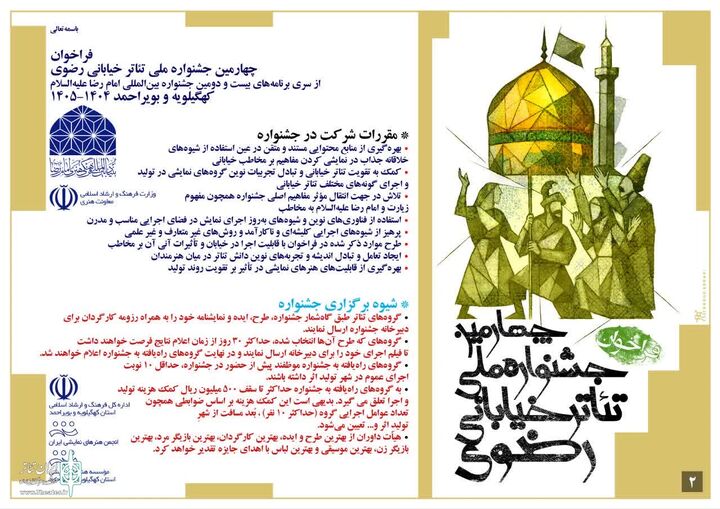 باسمه تعالی
فراخوان
چهارمین جشنواره ملی تئاتر خیابانی رضوی
از سری برنامه‌های بیست و دومین جشنواره بین‌المللی امام رضا علیه‌السلام
کهگیلویه و بویراحمد ۱۴۰۴-۱۴۰۵
* مقررات شرکت در جشنواره
• بهره‌گیری از منابع محتوایی مستند و متقن در عین استفاده از شیوه‌های
خلاقانه جذاب در نمایشی کردن مفاهیم بر مخاطب خیابانی
• کمک به تقویت تئاتر خیابانی و تبادل تجربیات نوین گروه‌های نمایشی در تولید
و اجرای گونه‌های مختلف تئاتر خیابانی
• تلاش در جهت انتقال مؤثر مفاهیم اصلی جشنواره همچون مفهوم
زیارت و امام رضا علیه‌السلام به مخاطب
• استفاده از فناوری‌های نوین و شیوه‌های به‌روز اجرای نمایش در فضای اجرایی مناسب و مدرن
• پرهیز از شیوه‌های اجرایی کلیشه‌ای و ناکارآمد و روش‌های غیر متعارف و غیر علمی
• طرح موارد ذکر شده در فراخوان با قابلیت اجرا در خیابان و تأثیرات آنی آن بر مخاطب
• ایجاد تعامل و تبادل اندیشه و تجربه‌های نوین دانش تئاتر در میان هنرمندان
• بهره‌گیری از قابلیت‌های هنرهای نمایشی در تأثیر بر تقویت روند تولید
* شیوه برگزاری جشنواره
• گروه‌های تئاتر طبق گاه‌شمار جشنواره، طرح، ایده و نمایشنامه خود را به همراه رزومه کارگردان برای
دبیرخانه جشنواره ارسال نمایند.
• گروه‌های که طرح آن‌ها انتخاب شده، حداکثر ۳۰ روز از زمان اعلام نتایج فرصت خواهند داشت
تا فیلم اجرای خود را برای دبیرخانه ارسال نمایند و در نهایت گروه‌های راه‌یافته به جشنواره اعلام خواهند شد.
• گروه‌های راه‌یافته به جشنواره موظفند پیش از حضور در جشنواره، حداقل ۱۰ نوبت
اجرای عموم در شهر تولید اثر داشته باشند.
• به گروه‌های راه‌یافته به جشنواره حداکثر تا سقف ۵۰۰ میلیون ریال کمک هزینه تولید
و اجرا تعلق می گیرد. بدیهی است این کمک هزینه بر اساس ضوابطی همچون
تعداد عوامل اجرایی گروه (حداکثر ۱۰ نفر) ، بُعد مسافت از شهر
تولید اثر و... تعیین می‌شود.
• هیأت داوران از بهترین طرح و ایده، بهترین کارگردان، بهترین بازیگر مرد، بهترین
بازیگر زن، بهترین موسیقی و بهترین لباس با اهدای جایزه تقدیر خواهد کرد.
وزارت فرهنگ و ارشاد اسلامی
معاونت هنری
اداره کل فرهنگ و ارشاد اسلامی
استان کهگیلویه و بویراحمد
انجمن هنرهای نمایشی ایران
استان کهگیلویه
ایران تئاتر
فراخوان
چهارمین
جشنواره ملی
تئاتر خیابانی
رضوی
۲